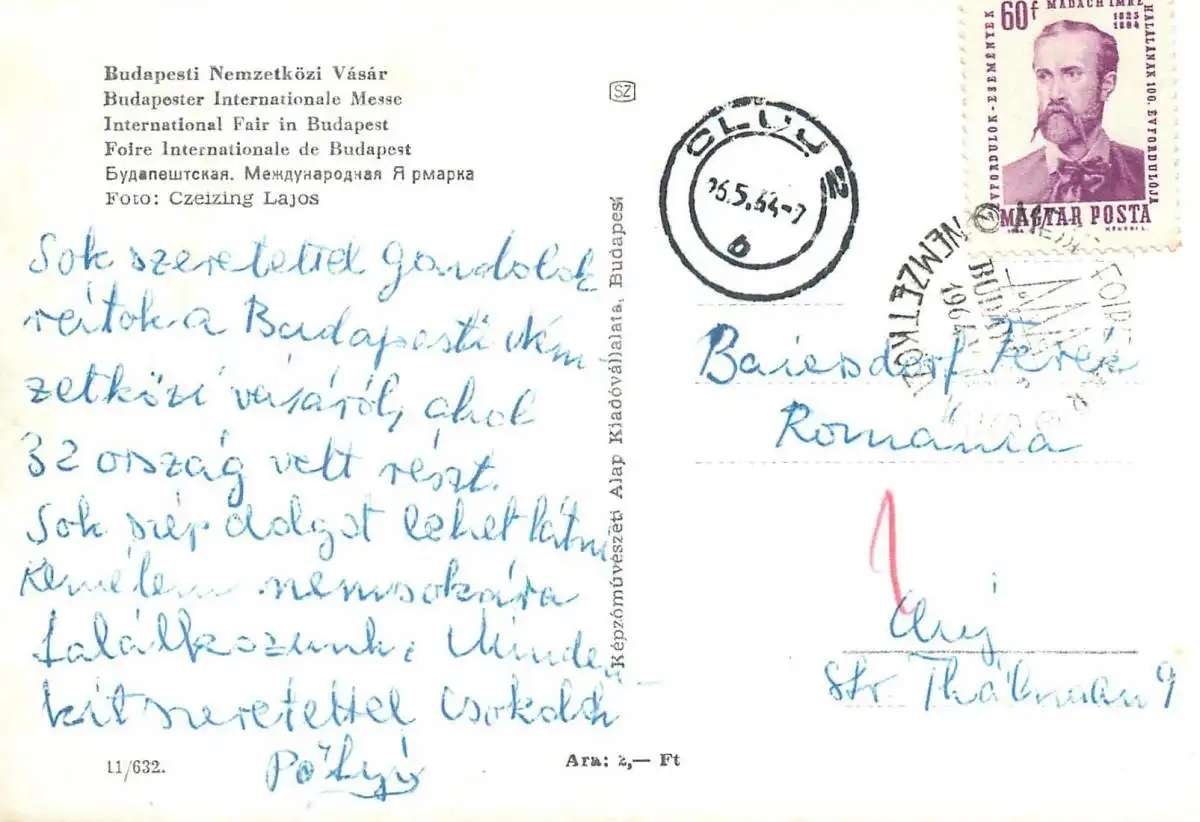 Budapesti Nemzetközi Vásár
Budapester Internationale Messe
International Fair in Budapest
Foire Internationale de Budapest
Будапештская. Международная Я рмарка
Foto: Czeizing Lajos
Sok szeretettel gondolok
rátok a Budapesti Nem
zetközi vásáról, ahol
32 ország vett részt.
Sok szép dolgot lehet látni
Remélem nemsokára
találkozunk. Minden
kit szeretettel csókolok
11/632.
Ára: 2,— Ft
Képzőművészeti Alap Kiadóvállalata, Budapest
SZ
CLUJ 2
26.5.64-7
b
60f
MADÁCH IMRE
1823
1864
HALÁLÁNAK 100. ÉVFORDULÓJA
ÉVFORDULÓK - ESEMÉNYEK
MAGYAR POSTA
NEMZETKÖZI
BUDAPEST
1964
Baiersdorf Ferék
Románia
Cluj
Str. Thälman 9